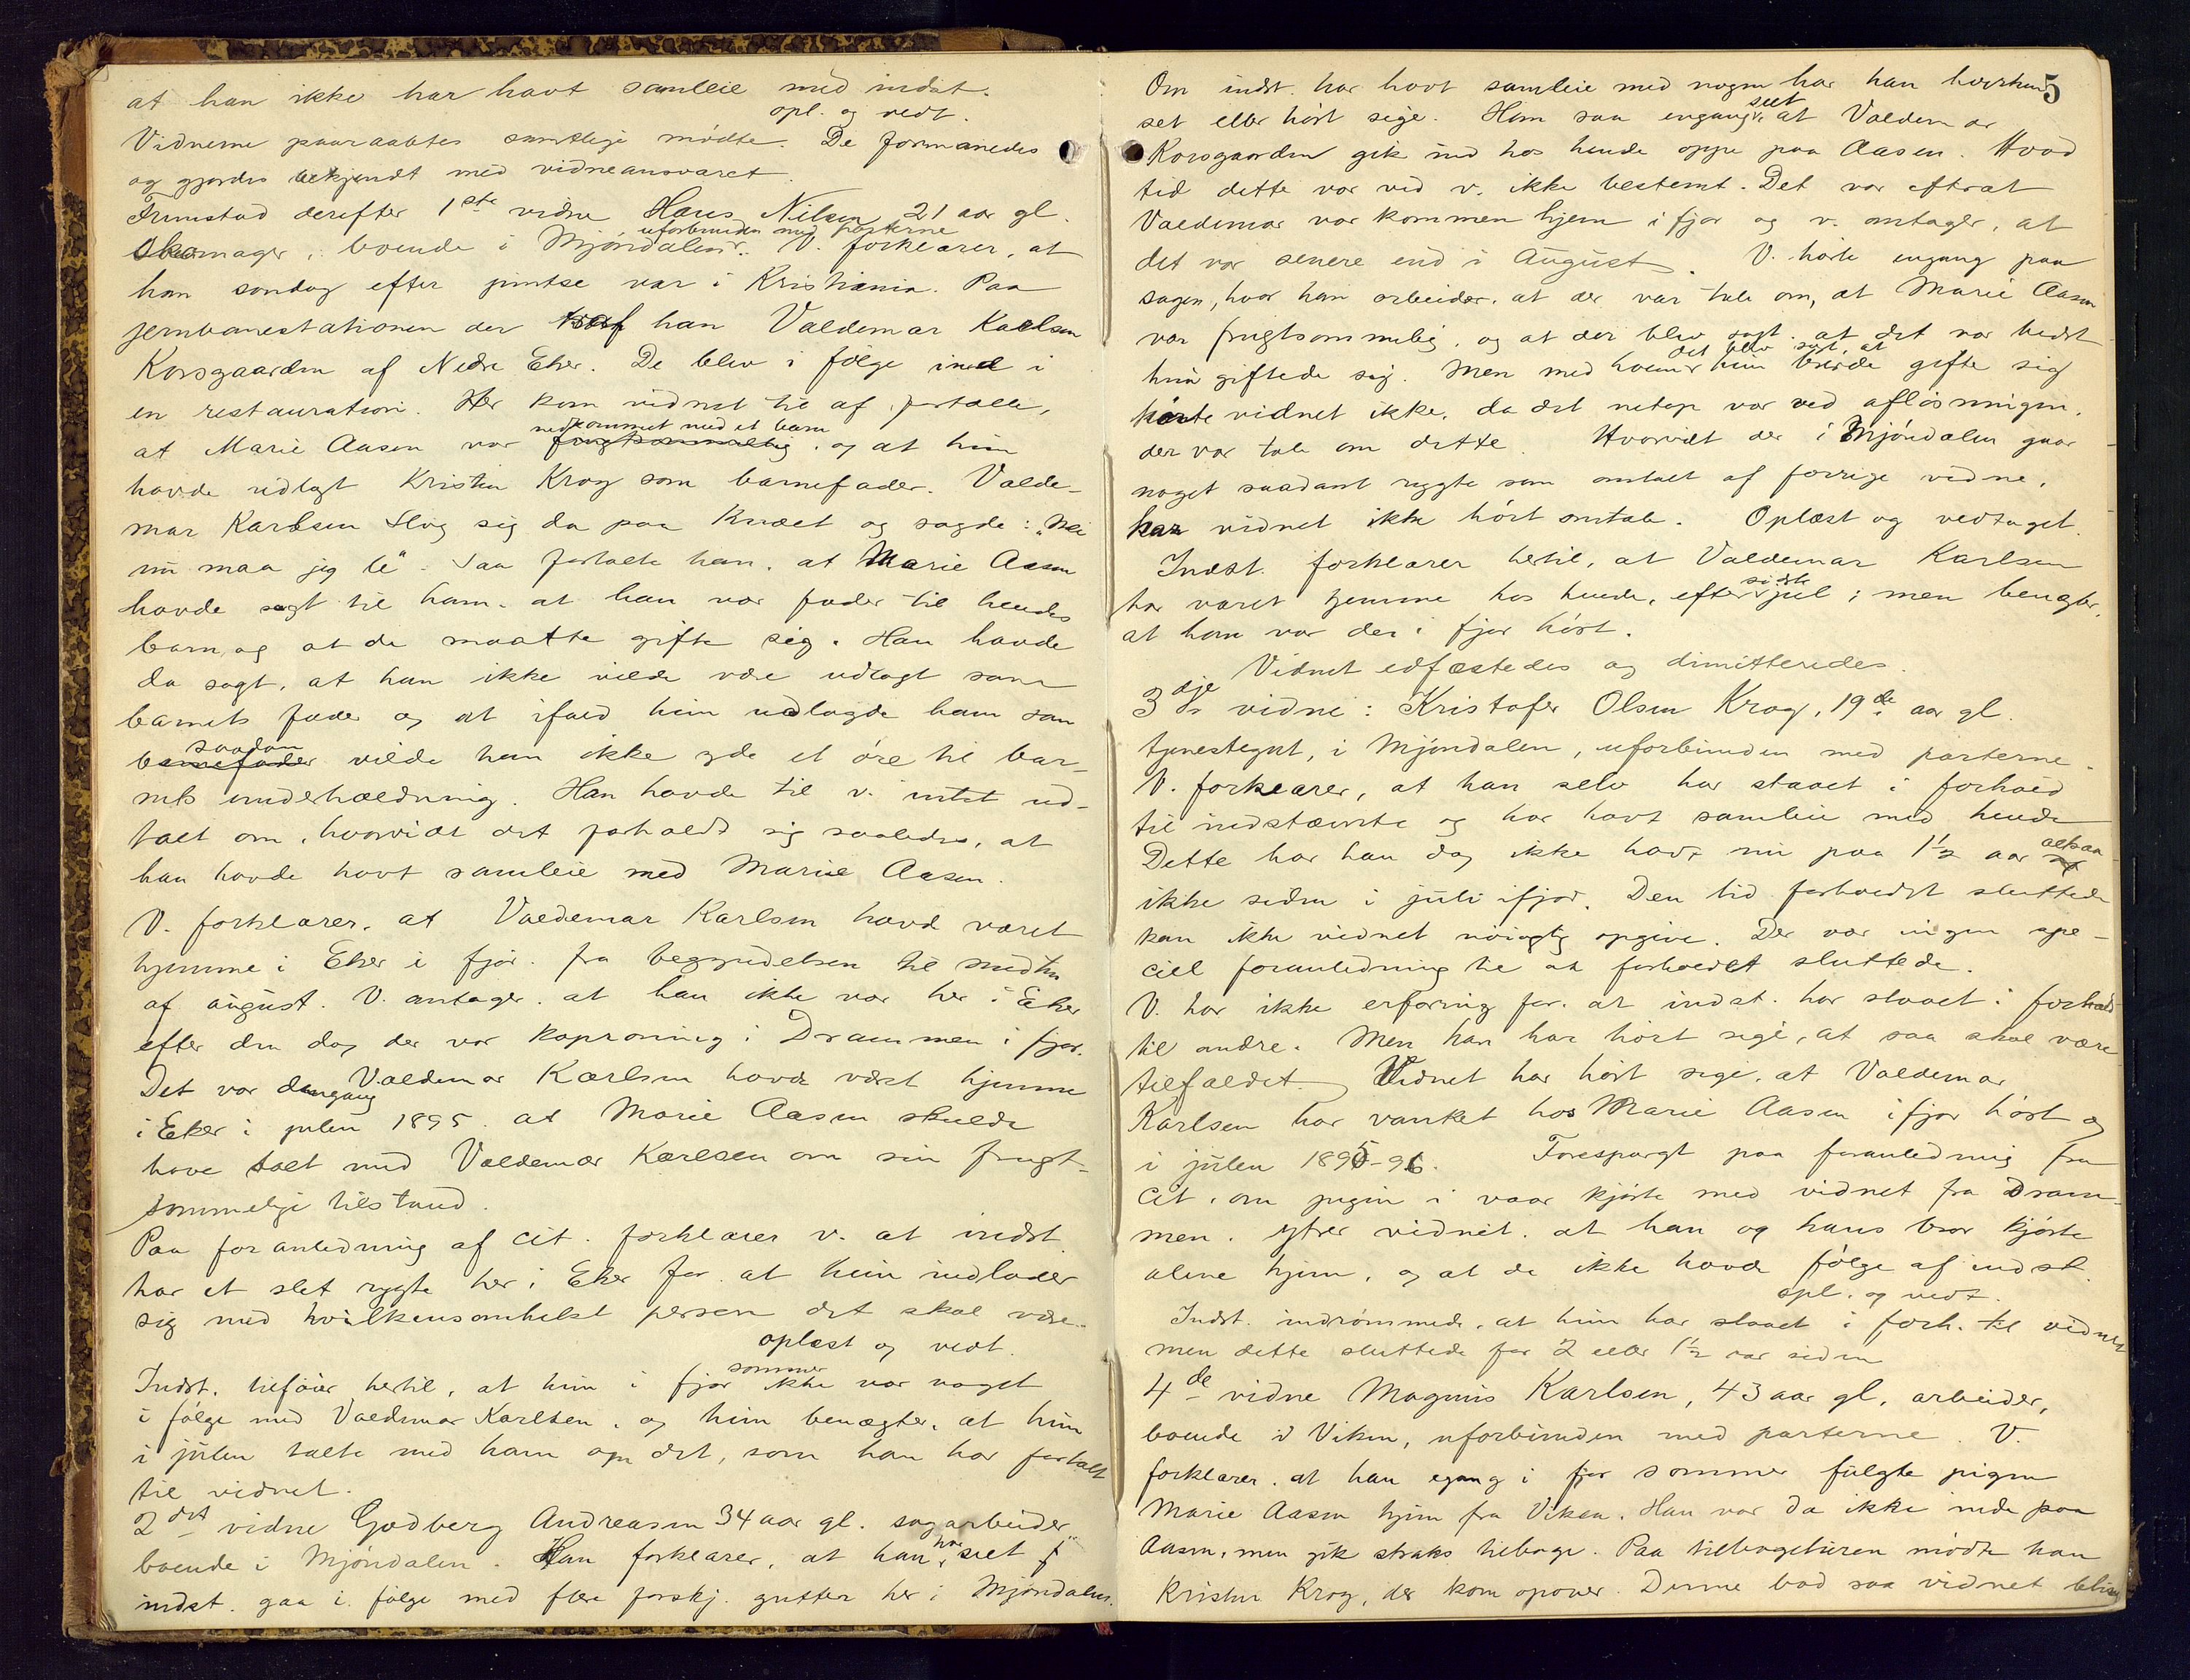 at han ikke har havt samleie med indst.
opl. og vedt.
Vidnerne paaraabtes samtlige mødte. De formanedes
og gjordes bekjendt med vidneansvaret.
Fremstod derefter 1ste vidne Hans Nilsen 21 aar gl.
uforbunden med parterne
Skomager, boende i Mjøndalen. V. forklarer, at
han søndag efter pintse var i Kristiania. Paa
jernbanestationen der traf han Valdemar Karlsen
Korsgaarden af Nedre Eker. De blev i følge ind i
en restauration. Her kom vidnet til at fortælle,
nedkommet med et barn
at Marie Aasen var frugtsommelig, og at hun
havde udlagt Kristen Krog som barnefader. Valde-
mar Karlsen slog sig da paa knæet og sagde: "Nei
nu maa jeg le". Saa fortalte han, at Marie Aasen
havde sagt til ham, at han var fader til hendes
barn, og at de maatte gifte sig. Han havde
da sagt, at han ikke vilde være udlagt som
barnets fader og at ifald hun udlagde ham som
saadan
barnefader vilde han ikke yde et øre til bar-
nets underholdning. Han havde til v. intet ud-
talt om, hvorvidt det forholdt sig saaledes, at
han havde havt samleie med Marie Aasen.
V. forklarer, at Valdemar Karlsen havd været
hjemme i Eker i fjor fra begyndelsen til midten
af august. V. antager, at han ikke var her i Eker
efter den dag der var kaproning i Drammen i fjor.
Det var dengang Valdemar Karlsen havde været hjemme
i Eker i julen 1895 at Marie Aasen skulde
have talt med Valdemar Karlsen om sin frugt-
sommelige tilstand.
Paa foranledning af cit. forklarer v. at indst.
har et slet rygte her i Eker for at hun indlader
sig med hvilkensomhelst person det skal være.
oplæst og vedt.
sommer
Indst. tilføier hertil, at hun i fjor ikke var noget
i følge med Valdemar Karlsen, og hun benægter, at hun
i julen talte med ham om det, som han har fortalt
til vidnet.
2det vidne Godberg Andreasen 34 aar gl. sagarbeider
har
boende i Mjøndalen. Han forklarer, at han seet
indst. gaa i følge med flere forskj. gutter her i Mjøndalen.
5
Om indst. har havt samleie med nogen har han hverken
seet
set eller hørt sige. Han saa engang at Valdemar
Korsgaarden gik ind hos hende oppe paa Aasen. Hvad
tid dette var ved v. ikke bestemt. Det var efterat
Valdemar var kommen hjem i fjor og v. antager, at
det var senere end i August. V. hørte engang paa
sagen, hvor han arbeider, at der var tale om, at Marie Aasen
var frugtsommelig, og at der blev sagt, at det var bedst
det blev sagt, at
hun giftede sig. Men med hvem hun burde gifte sig
hørte vidnet ikke, da det netop var ved afløsningen,
der var tale om dette. Hvorvidt der i Mjøndalen gaar
noget saadant rygte som omtalt af forrige vidne,
har vidnet ikke hørt omtale. Oplæst og vedtaget.
Indst. forklarer hertil, at Valdemar Karlsen
sidste
har været hjemme hos hende, efter jul; men benægter,
at han var der i fjor høst.
Vidnet edfæstedes og dimitteredes.
3dje vidne: Kristofer Olsen Krog, 19de aar gl.
tjenestegut, i Mjøndalen, uforbunden med parterne.
V. forklarer, at han selv har staaet i forhold
til indstævnte og har havt samleie med hende
altsaa
Dette har han dog ikke havt nu paa 1½ aar
ikke siden i juli ifjor. Den tid forholdet sluttede
kan ikke vidnet nøiagtig opgive. Der var ingen spe-
ciel foranledning til at forholdet sluttede.
V. har ikke erfaring for, at indst. har staaet i forhold
til andre. Men han har hørt sige, at saa skal være
tilfældet. Vidnet har hørt sige, at Valdemar
Karlsen har vanket hos Marie Aasen i fjor høst og
i julen 1895-96. Forespurgt paa foranledning fra
cit. om pigen i vaar kjørte med vidnet fra Dram-
men, ytrer vidnet, at han og hans bror kjørte
alene hjem, og at de ikke havde følge af indst.
opl. og vedt.
Indst. indrømmede, at hun har staaet i forh. til vidnet
men dette sluttede for 2 eller 1½ aar siden
4de vidne Magnus Karlsen, 43 aar gl, arbeider,
boende i Viken, uforbunden med parterne. V.
forklarer, at han egang i fjor sommer fulgte pigen
Marie Aasen hjem fra Viken. Han var da ikke inde paa
Aasen, men gik straks tilbage. Paa tilbageturen mødte han
Kristen Krog, der kom opover. Denne bad saa vidnet